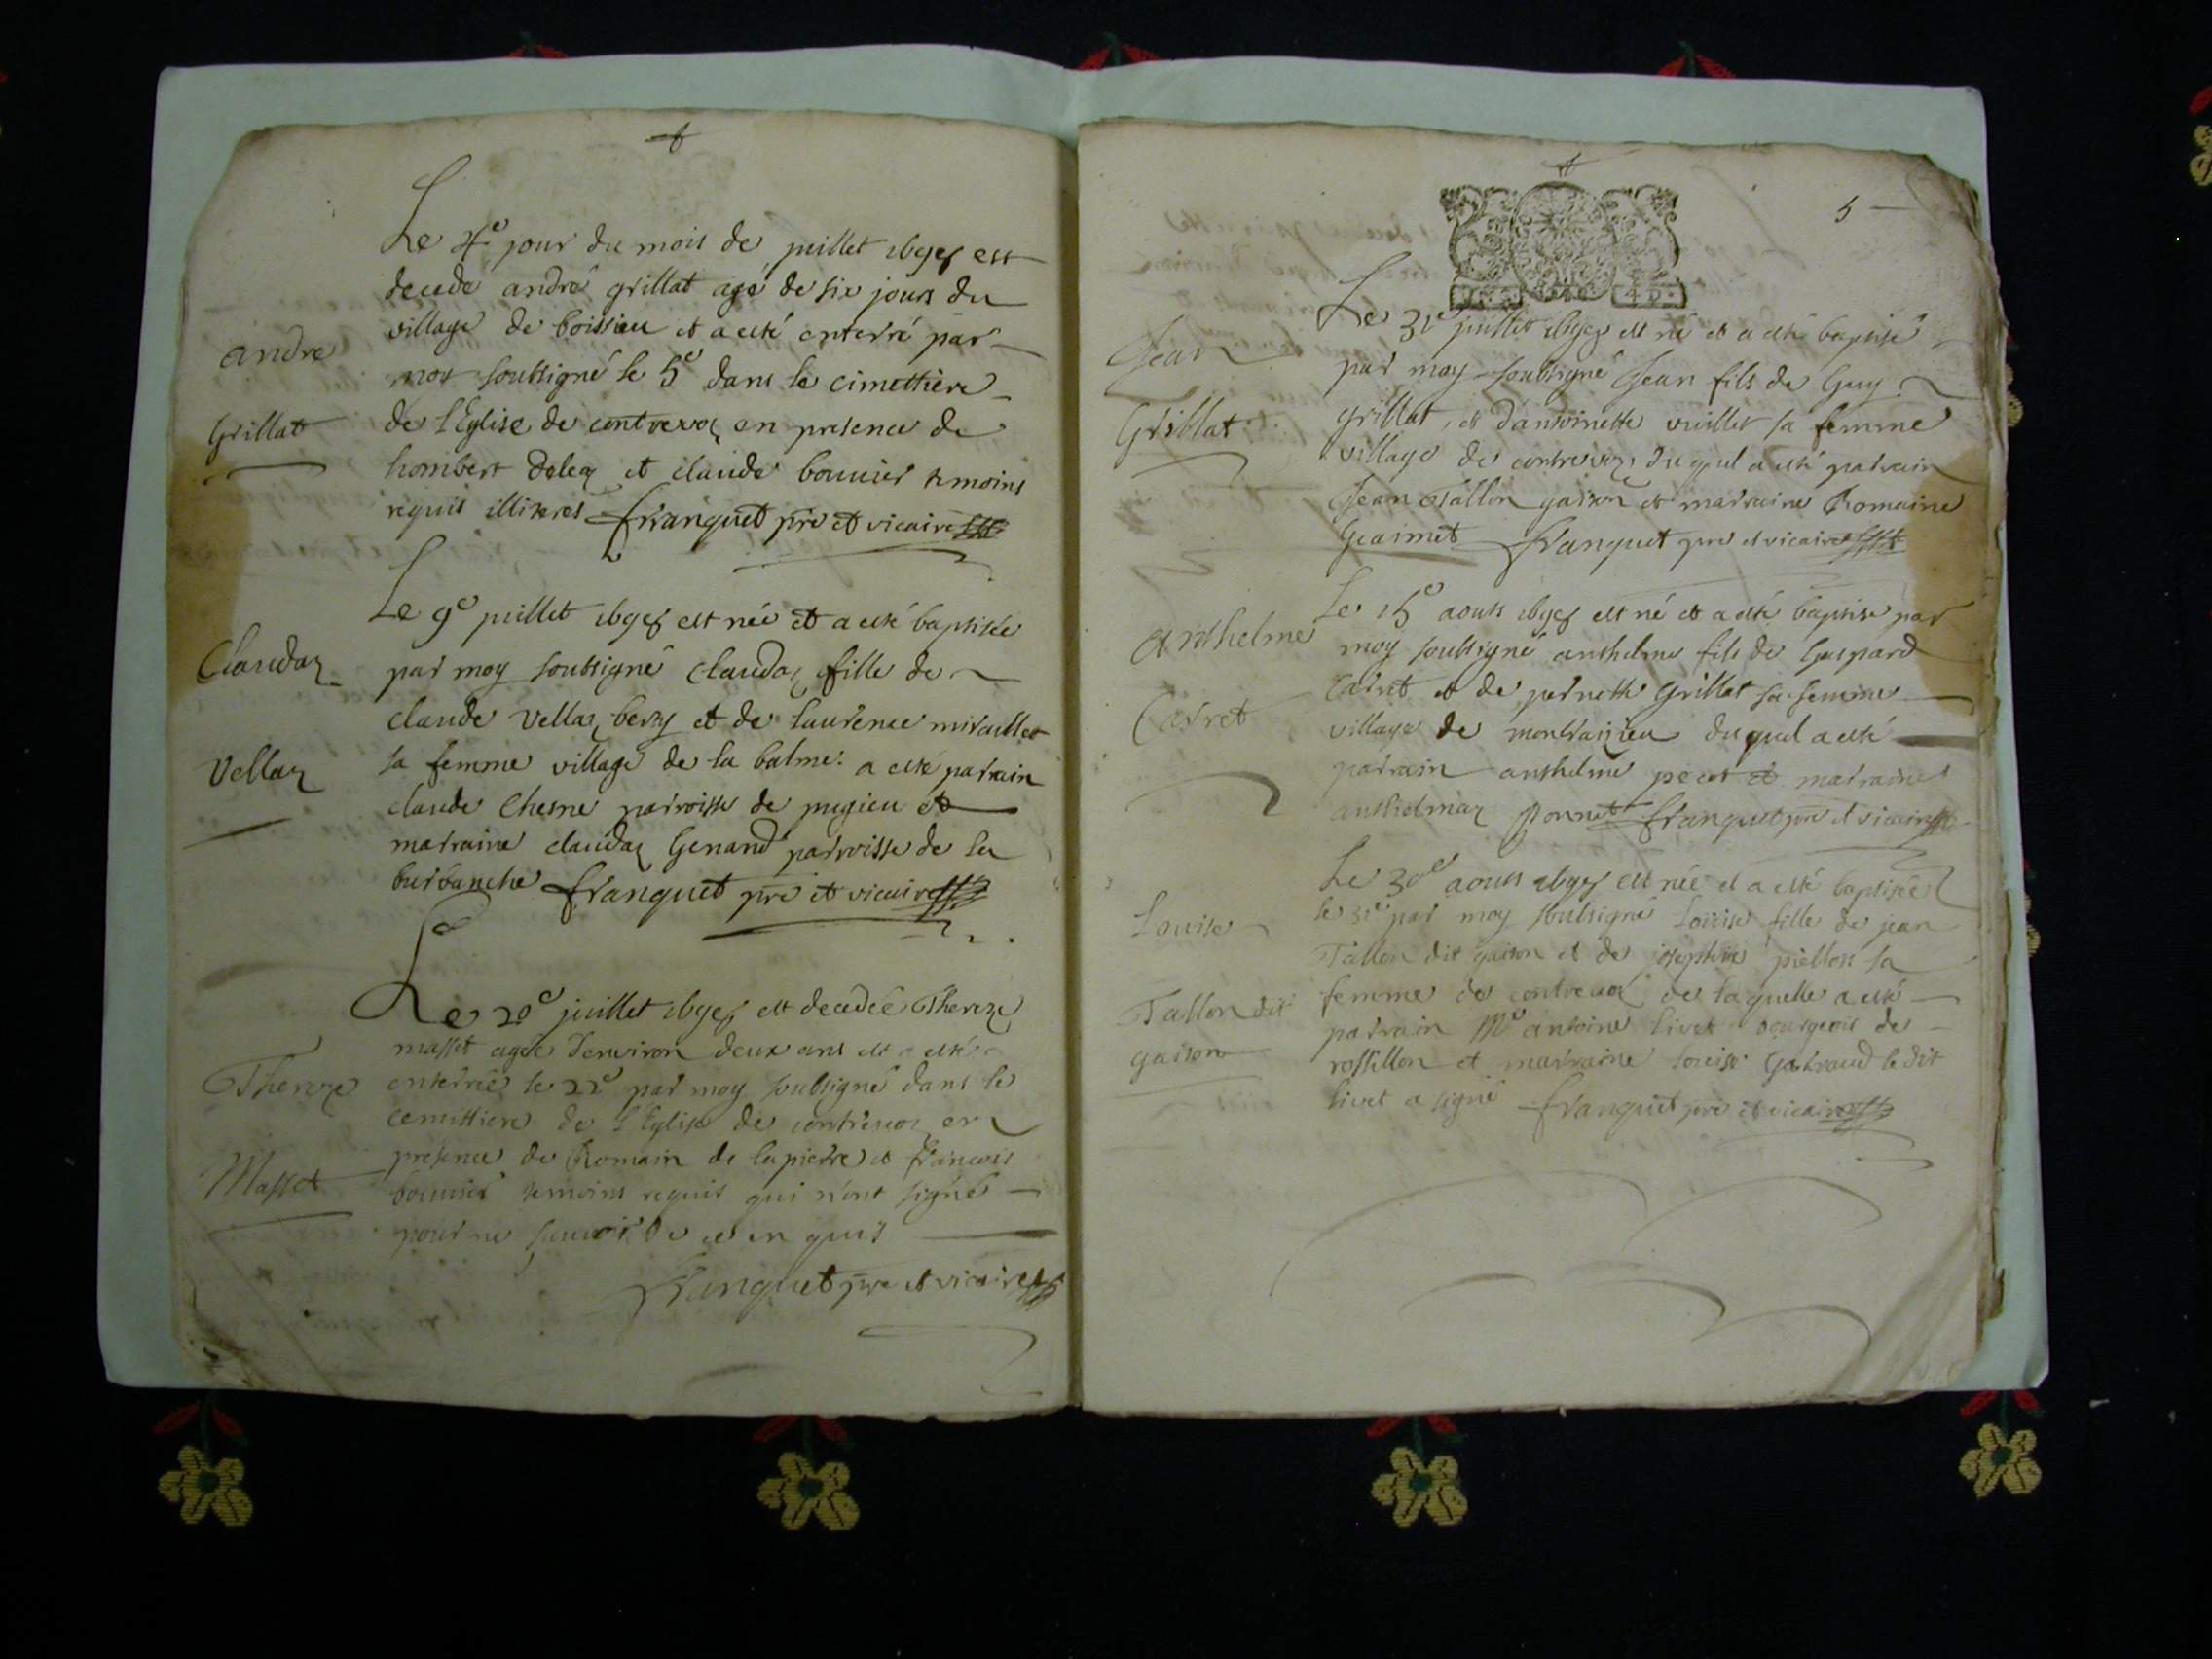 Le 4e jour du mois de juillet est
decedé andré grillat agé de six jours du
village de boissieu et a esté enterré par
andre
moy soubsigné le 5e dans le cimettiere
Grillat
de l'Eglise de contrevoz en presence de
hombert et claude bouvier temoins
requis illiteres franquet pre et vicaire
Le 9e juillet est née et a esté baptisée
Claudaz
par moy soubsigné claudaz fille de
claude Vellaz et de laurence
Vellaz
sa femme village de la balme a esté parrain
claude Chesne parroisse de pugieu et
marraine claudaz Genand parroisse de la
burbanche franquet pre et vicaire
Le 20e juillet est decedée Thereze
masset agée d'environ deux ans et a esté
Thereze
enterrée le 22e par moy soubsigné dans le
cemittiere de l'Eglise de contrevoz en
presence de Romain de lapierre et francois
Masset
bouvier temoins requis qui n'ont signé
pour ne scavoir de ce en quis
franquet pre et vicaire
5
Le 31e juillet est né et a esté baptisé
Jean
par moy soubsigné Jean fils de Guy
Grillat
grillat, et d'antoinette vuillet sa femme
village de contrevoz duquel a esté parrain
Jean Tallon gaison et marraine Romaine
franquet pre et vicaire
Le 15e aoust est né et a esté baptisé par
Anthelme
moy soubsigné anthelme fils de Gaspard
Carret
Carret et de pernette Grillat sa femme
village de montbaizieu duquel a esté
parrain anthelme et marraine
anthelmaz franquet pre et vicaire
Le 30e aoust est née et a esté baptisée
Louise
le 31e par moy soubsigné Louise fille de jean
Tallon dit gaison et de piellon sa
Tallon dit
femme de contrevoz de laquelle a esté
gaison
parrain Me antoine livet bourgeois de
rossillon et marraine Louise le dit
livet a signé franquet pre et vicaire